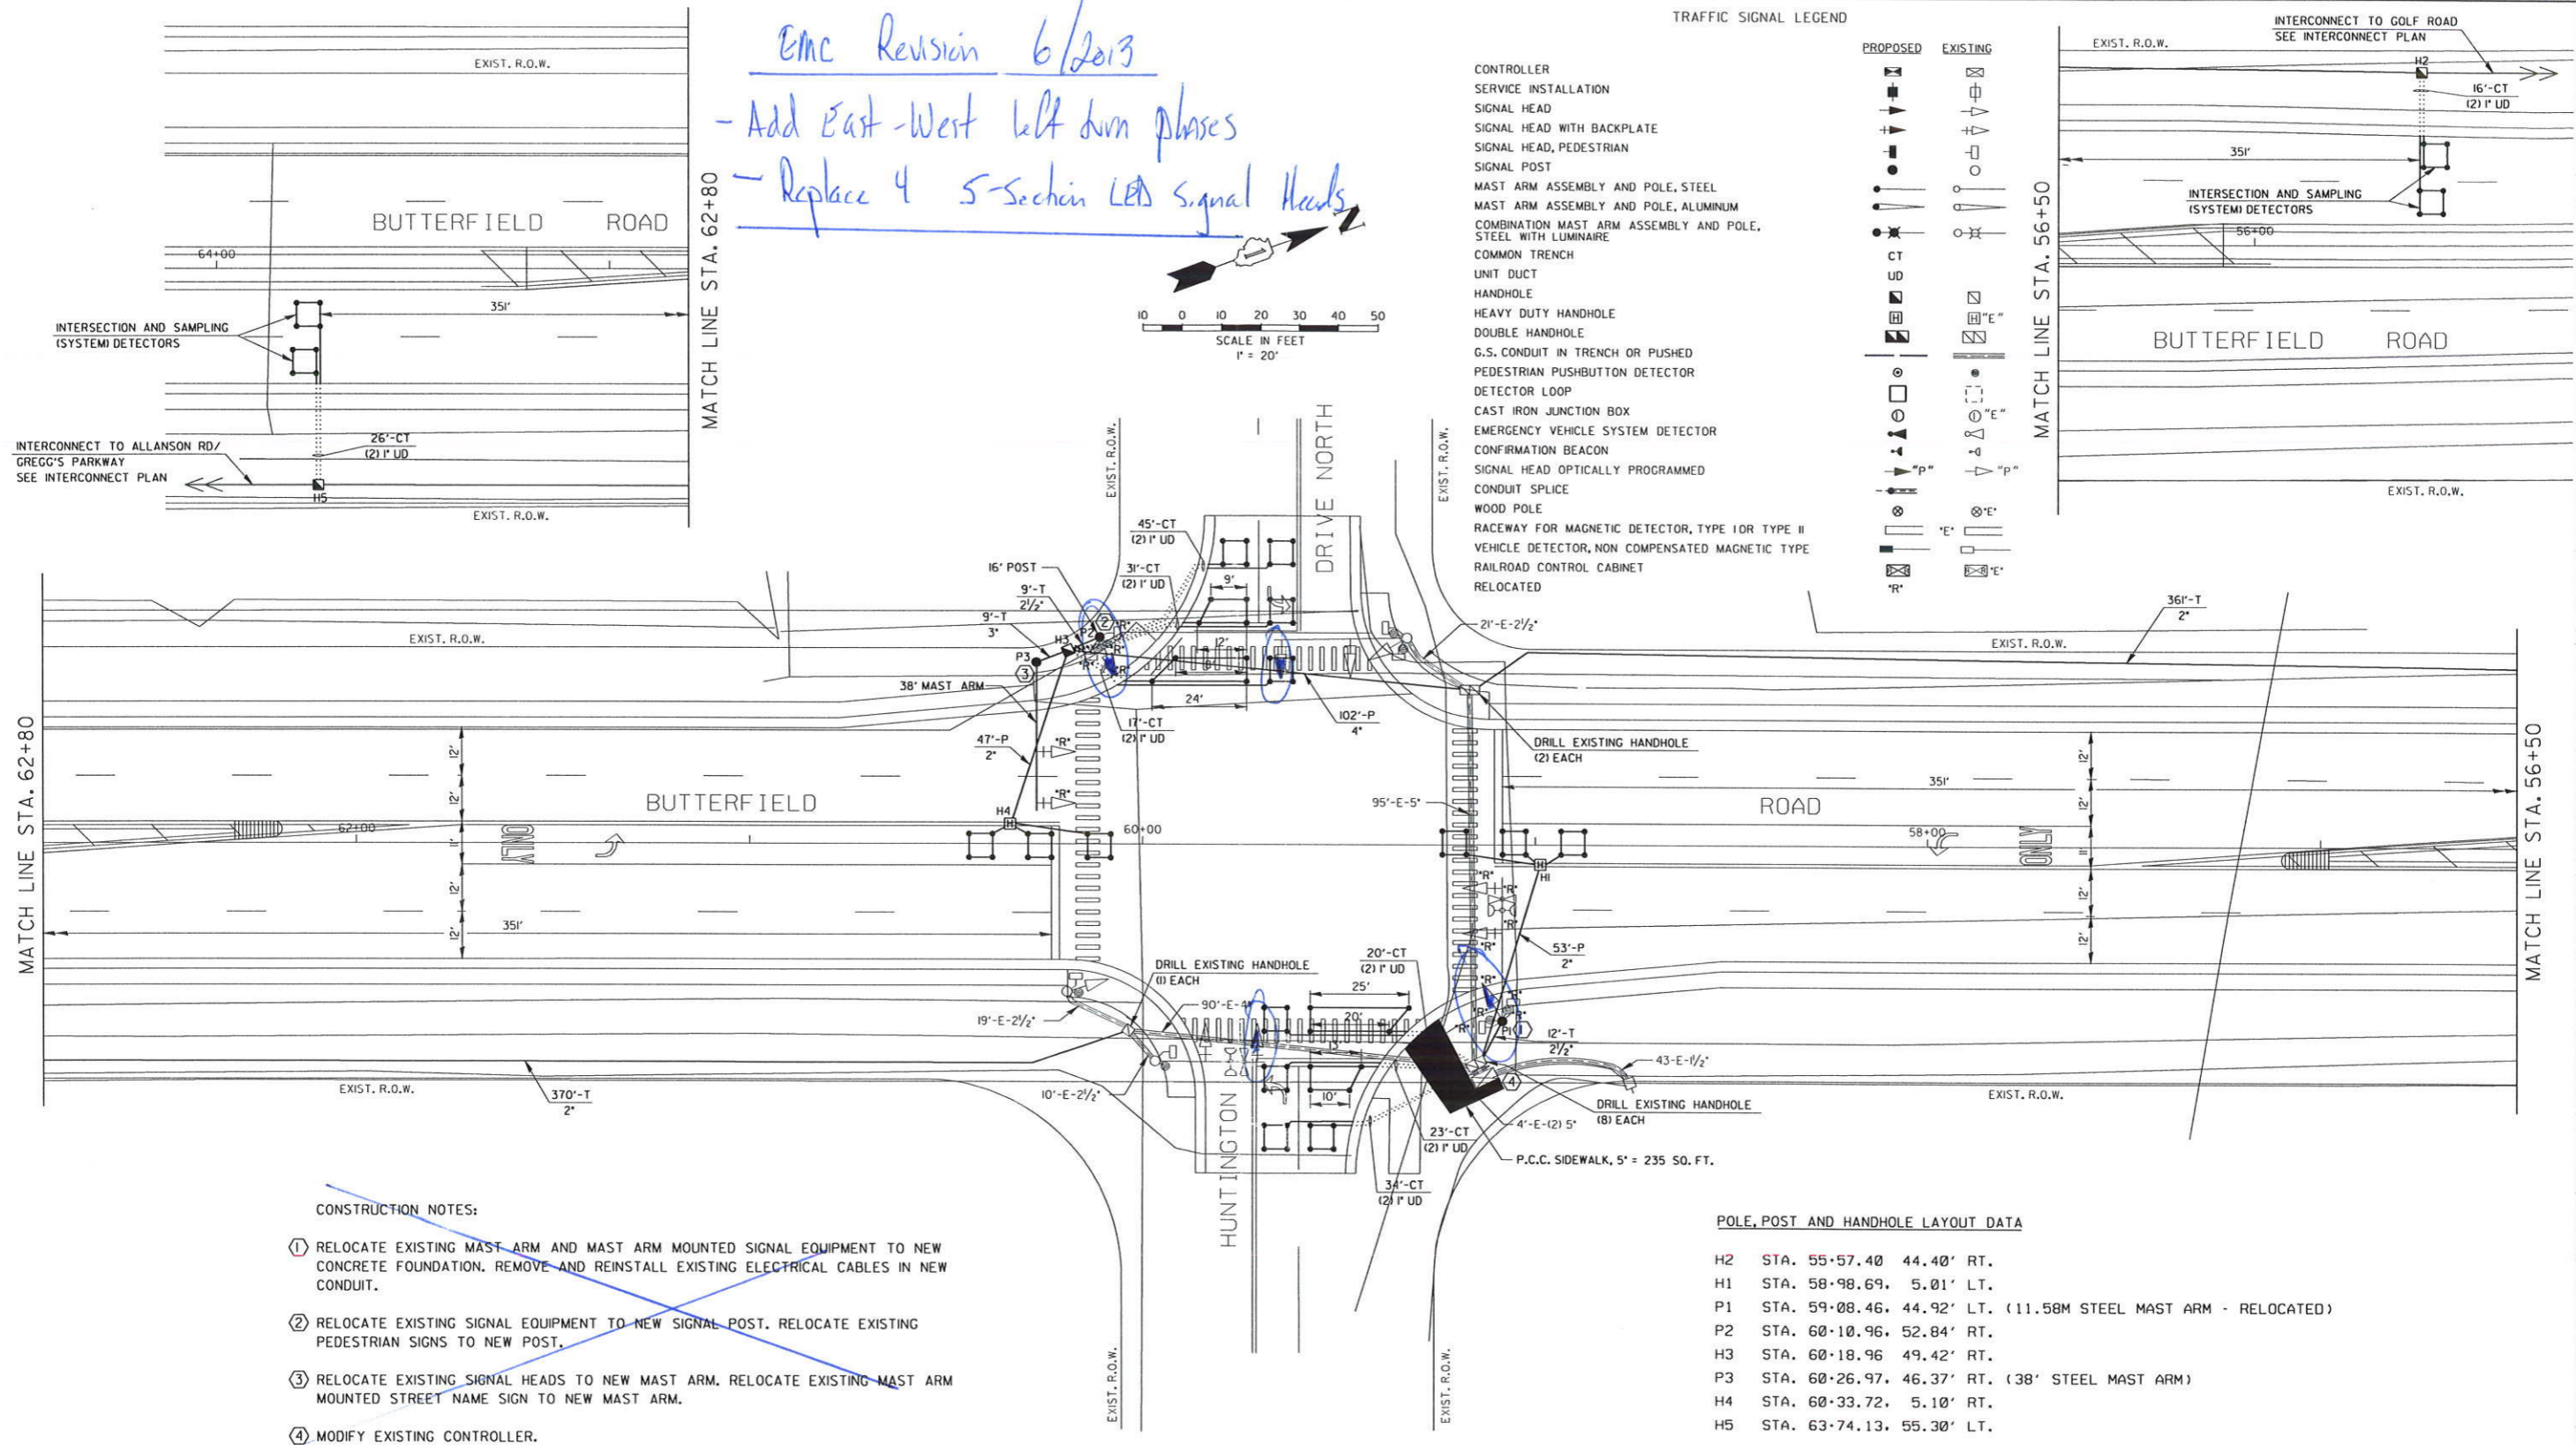 EMC Revision 6/2013
- Add East-West left turn phases
- Replace 4 5-Section LED Signal Heads
EXIST. R.O.W.
BUTTERFIELD ROAD
64+00
351'
INTERSECTION AND SAMPLING
(SYSTEM) DETECTORS
MATCH LINE STA. 62+80
INTERCONNECT TO ALLANSON RD/
GREGG'S PARKWAY
SEE INTERCONNECT PLAN
26'-CT
(2) 1" UD
H5
EXIST. R.O.W.
N
10 0 10 20 30 40 50
SCALE IN FEET
1" = 20'
TRAFFIC SIGNAL LEGEND
PROPOSED EXISTING
CONTROLLER
SERVICE INSTALLATION
SIGNAL HEAD
SIGNAL HEAD WITH BACKPLATE
SIGNAL HEAD, PEDESTRIAN
SIGNAL POST
MAST ARM ASSEMBLY AND POLE, STEEL
MAST ARM ASSEMBLY AND POLE, ALUMINUM
COMBINATION MAST ARM ASSEMBLY AND POLE,
STEEL WITH LUMINAIRE
COMMON TRENCH CT
UNIT DUCT UD
HANDHOLE
HEAVY DUTY HANDHOLE H H "E"
DOUBLE HANDHOLE
G.S. CONDUIT IN TRENCH OR PUSHED
PEDESTRIAN PUSHBUTTON DETECTOR
DETECTOR LOOP
CAST IRON JUNCTION BOX "E"
EMERGENCY VEHICLE SYSTEM DETECTOR
CONFIRMATION BEACON
SIGNAL HEAD OPTICALLY PROGRAMMED "P" "P"
CONDUIT SPLICE
WOOD POLE "E"
RACEWAY FOR MAGNETIC DETECTOR, TYPE I OR TYPE II "E"
VEHICLE DETECTOR, NON COMPENSATED MAGNETIC TYPE
RAILROAD CONTROL CABINET "E"
RELOCATED "R"
INTERCONNECT TO GOLF ROAD
SEE INTERCONNECT PLAN
EXIST. R.O.W.
H2
16'-CT
(2) 1" UD
351'
INTERSECTION AND SAMPLING
(SYSTEM) DETECTORS
56+00
MATCH LINE STA. 56+50
BUTTERFIELD ROAD
EXIST. R.O.W.
EXIST. R.O.W.
EXIST. R.O.W.
DRIVE NORTH
45'-CT
(2) 1" UD
31'-CT
(2) 1" UD
16' POST
9'-T
2½"
9'-T
3"
9'
12'
24'
H3
P2
2
P3
3
"R"
38' MAST ARM
17'-CT
(2) 1" UD
47'-P
2"
102'-P
4"
21'-E-2½"
361'-T
2"
EXIST. R.O.W.
EXIST. R.O.W.
DRILL EXISTING HANDHOLE
(2) EACH
MATCH LINE STA. 62+80
BUTTERFIELD
ROAD
"R"
"R"
12'
12'
11'
12'
12'
62+00
ONLY
H4
H
60+00
95'-E-5"
351'
58+00
ONLY
H
H1
12'
12'
11'
12'
12'
MATCH LINE STA. 56+50
351'
"R"
"R"
"R"
"R"
53'-P
2"
DRILL EXISTING HANDHOLE
(1) EACH
90'-E-4"
20'-CT
(2) 1" UD
25'
20'
13'
10'
"R"
"R"
"R"
P1
1
12'-T
2½"
43-E-1½"
4
19'-E-2½"
10'-E-2½"
370'-T
2"
EXIST. R.O.W.
EXIST. R.O.W.
DRILL EXISTING HANDHOLE
(8) EACH
4'-E-(2) 5"
23'-CT
(2) 1" UD
P.C.C. SIDEWALK, 5" = 235 SQ. FT.
34'-CT
(2) 1" UD
HUNTINGTON
EXIST. R.O.W.
EXIST. R.O.W.
CONSTRUCTION NOTES:
1 RELOCATE EXISTING MAST ARM AND MAST ARM MOUNTED SIGNAL EQUIPMENT TO NEW
CONCRETE FOUNDATION. REMOVE AND REINSTALL EXISTING ELECTRICAL CABLES IN NEW
CONDUIT.
2 RELOCATE EXISTING SIGNAL EQUIPMENT TO NEW SIGNAL POST. RELOCATE EXISTING
PEDESTRIAN SIGNS TO NEW POST.
3 RELOCATE EXISTING SIGNAL HEADS TO NEW MAST ARM. RELOCATE EXISTING MAST ARM
MOUNTED STREET NAME SIGN TO NEW MAST ARM.
4 MODIFY EXISTING CONTROLLER.
POLE, POST AND HANDHOLE LAYOUT DATA
H2 STA. 55+57.40 44.40' RT.
H1 STA. 58+98.69, 5.01' LT.
P1 STA. 59+08.46, 44.92' LT. (11.58M STEEL MAST ARM - RELOCATED)
P2 STA. 60+10.96, 52.84' RT.
H3 STA. 60+18.96 49.42' RT.
P3 STA. 60+26.97, 46.37' RT. (38' STEEL MAST ARM)
H4 STA. 60+33.72, 5.10' RT.
H5 STA. 63+74.13, 55.30' LT.